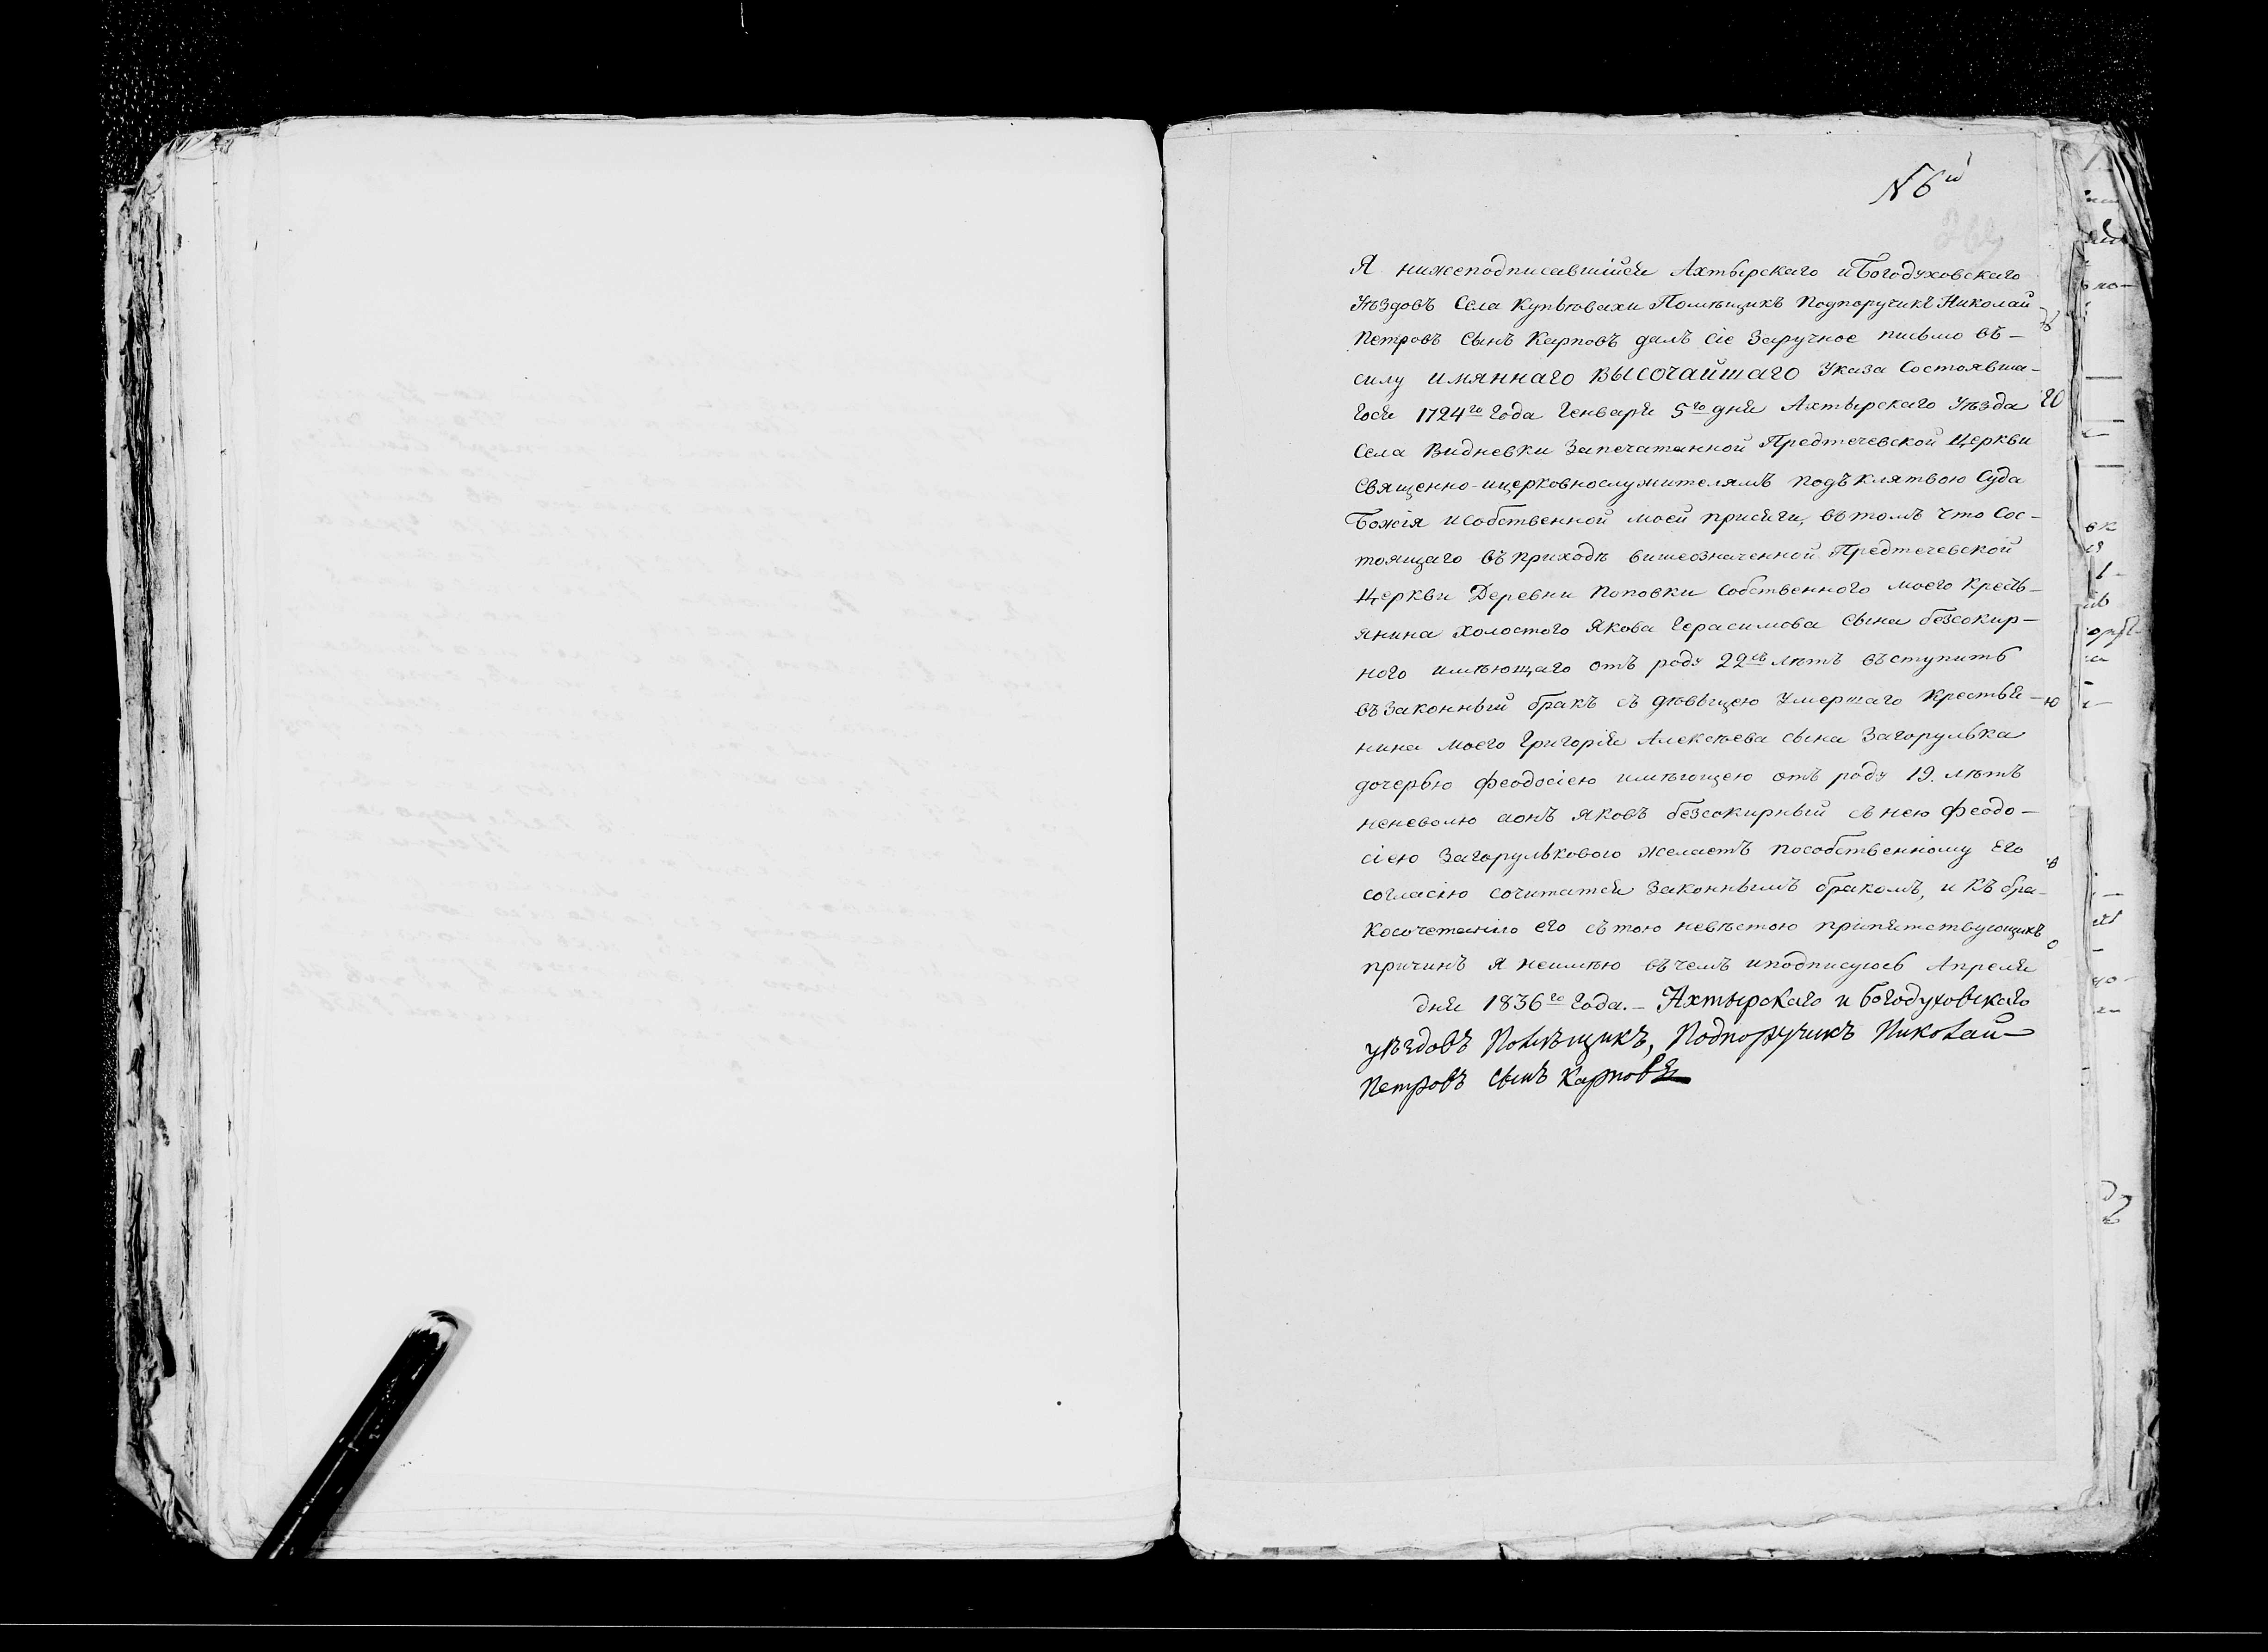 N 6й
Я нижеподписавшійся Ахтырскаго и Богодуховскаго
Уѣздовъ Села Купьевахи Помѣщикъ Подпоручикъ Николай
Петровъ Сынъ Карповъ далъ сіе Заручное письмо въ-
силу имяннаго ВЫСОЧАЙШАГО Указа Состоявша-
гося 1724го года Генваря 5го дня Ахтырскаго Уѣзда
Села Видневки Запечатанной Предтечевской Церкви
Священно-ицерковнослужителямъ подъ клятвою Суда
Божія исобственной моей присяги, втомъ что Сос-
тоящаго въ приходѣ вишеозначенной Предтечевской
Церкви Деревни Поповки Собственного моего Кресть-
янина холостого Якова Герасимова Сына безсокир-
ного имѣющаго отъ роду 22хъ лѣтъ въступить
въЗаконный бракъ съ дѣвыцею Умершаго Крестья-
нина Моего Григорія Алексѣева сына Загорулька
дочерью Феодосіею имѣющею отъ роду 19. лѣтъ
неневолю аонъ Яковъ безсокирный съ нею Феодо-
сіею Загорульковою желаетъ пособственному Его
согласію сочитатся Законнымъ бракомъ, и къ бра-
косочетанію его стою невѣстою припятствующихъ
причинъ я неимѣю въчемъ иподписуюсь Апреля
дня 1836го года.- Ахтырскаго и богодуховскаго
уѣздовъ Помѣщикъ, Подпоручикъ Николай
Петровъ Сынъ Карповъ